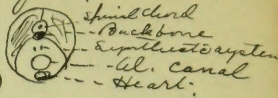 Spinal Chord
Backbone
Sympathetic system
Al. Canal
Heart.